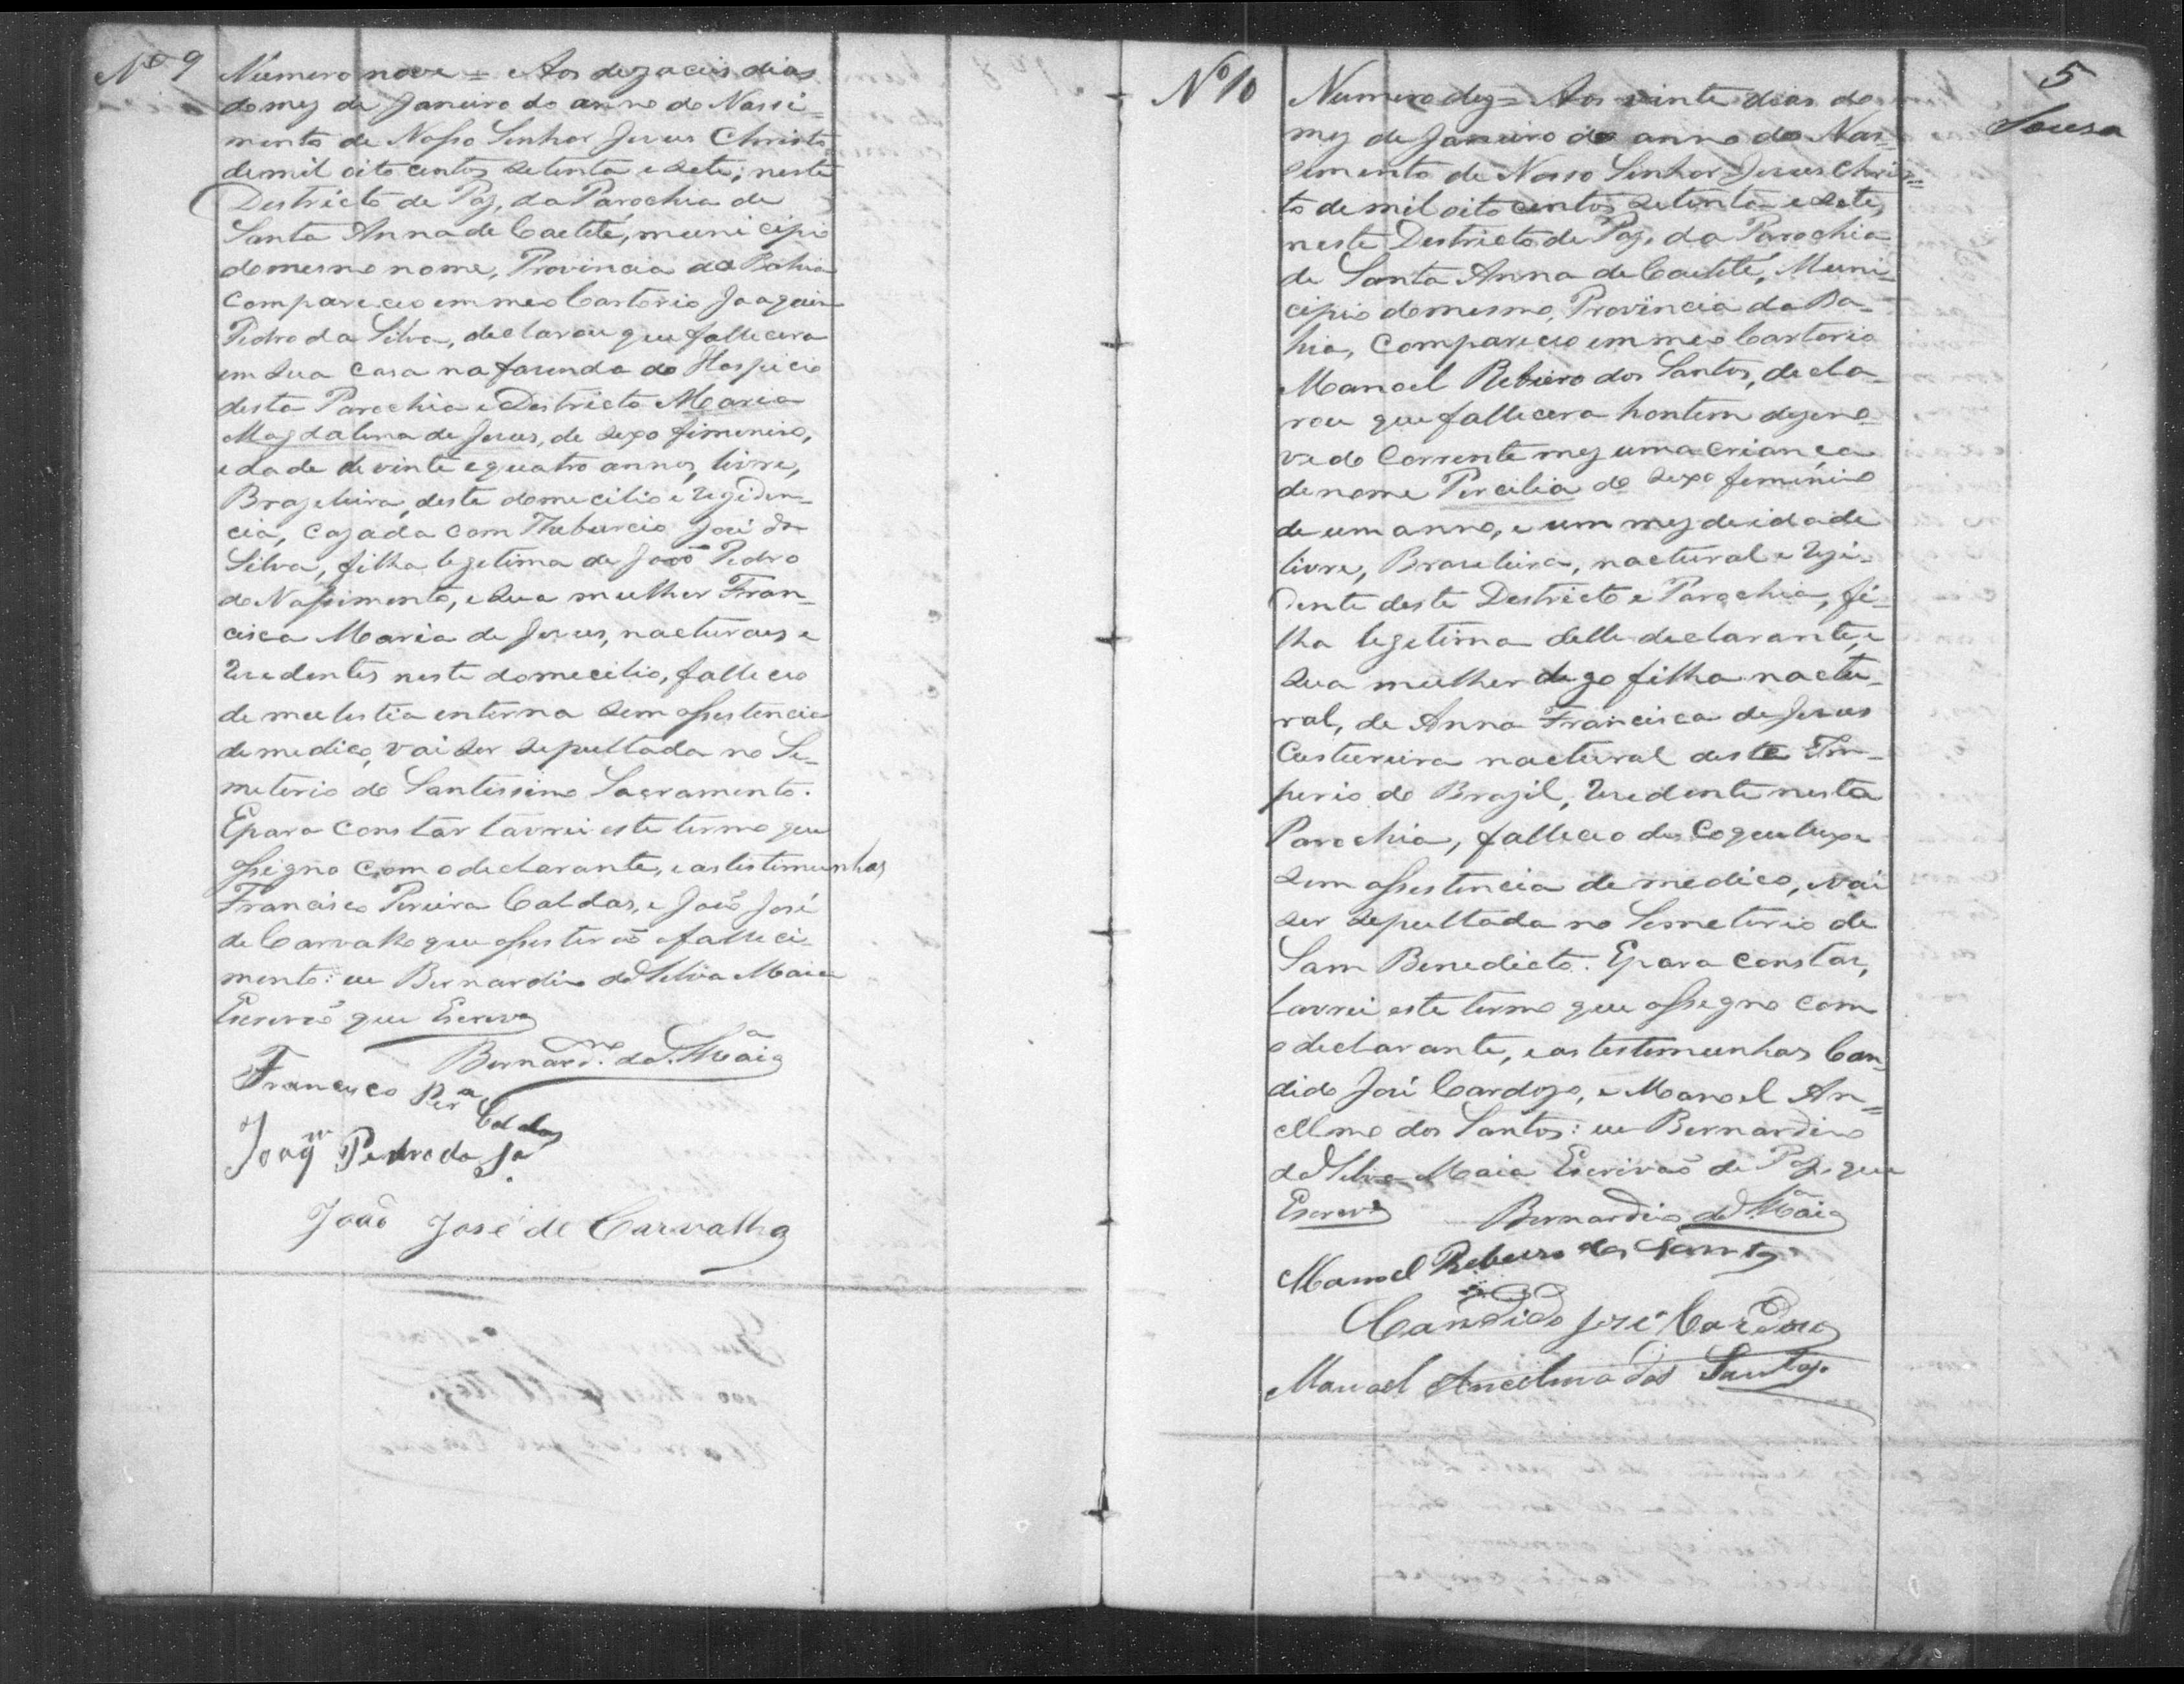 Nº 9
Número nove = Aos dezaceis dias
do mez de Janeiro do anno do Nassi-
mento de Nosso Senhor Jesus Christo
de mil oito centos setenta e sete; neste
Destricto de Paz, da Parochia de
Santa Anna de Caeteté, municipio
do mesmo nome, Provincia da Bahia
Compareceo em meo Cartorio Joaquim
Pedro da Silva, declarou que fallecera
em sua casa na fasenda do Hospicio
desta Parochia e Destricto Maria
Magdalena de Jesus, de sexo fimenino,
edade de vinte e quatro annos, livre,
Brazeleira, deste domecilio e reziden-
cia, cazada com Theburcio José da
Silva, filha legetima de João Pedro
do Nassimento, e sua mulher Fran-
cisca Maria de Jesus, nacturaes e
resedentes neste domecilio, falleceo
de molestia enterna sem assestencia
de medico, vai ser sepultada no Se-
meterio do Santissimo Sacramento.
E para constar lavrei este termo que
assegno com o declarante, e as testemunhas
Francisco Pereira Caldas, e João José
de Carvalho que assesterão o falleci-
mento: eu Bernardino da Silva Maia
Escrevão que Escrevy
Bernardno da Sa Maia
Francisco Pera
Caldas
Joaqm Pedro da Sa
João José de Carvalho
5
Sousa
Nº 10
Numero dez = Aos vinte dias do
mez de Janeiro do anno do Nas-
cemento de Nosso Senhor Jesus Chris=
to de mil oito centos setenta e sete,
neste Destricto de Paz, da Parochia
de Santa Anna de Caeteté, Muni-
cipio do mesmo, Provincia da Ba-
hia, Compareceo em meo Cartorio
Manoel Rebeiro dos Santos, decla-
rou que fallecera hontem dezeno-
ve do Corrente mez uma criança
de nome Percilia do sexo femenino
de um anno, e um mez de idade
livre, Braseleira, nactural e rezi-
dente deste Destricto e Parochia, fi-
lha legetima delle declarante, e
sua mulher digo filha nactu-
ral, de Anna Francisca de Jesus
Custureira nactural deste Im-
perio do Brazil, resedente nesta
Parochia, falleceo de Coqueluxe
sem assestencia de medico, vai
ser sepultada no Semeterio de
Sam Benedicto. E para constar,
lavrei este termo que assegno com
o declarante, e as testemunhas Can-
dido José Cardozo, e Manoel An=
cellmo dos Santos: eu Bernardino
da Silva Maia Escrivão de Paz que
Escrevy
Bernardino da Sa Maia
Manoel Rebeiro dos Santos
Candido José Cardozo
Manoel Ancelmo dos Santos.